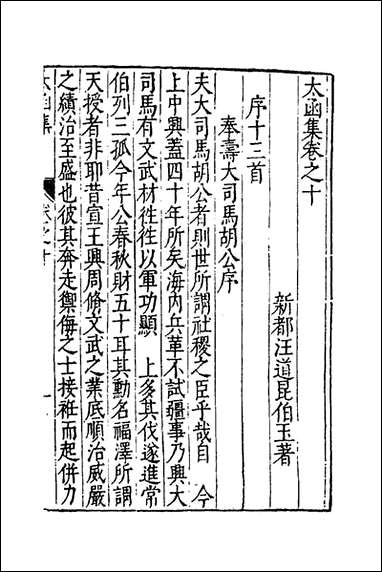 太函集卷之十
新都汪道昆伯玉著
序十三首
奉壽大司馬胡公序
夫大司馬胡公者則世所謂社稷之臣乎哉自　今
上中興蓋四十年所矣海内兵革不試疆事乃興大
司馬有文武材徃徃以軍功顯　上多其伐遂進常
伯列三孤今年公春秋財五十耳其勳名福澤所謂
天授者非耶昔宣王興周脩文武之業底順治威嚴
之績治至盛也彼其奔走禦侮之士接袵而起併力
太函集
卷之十
一